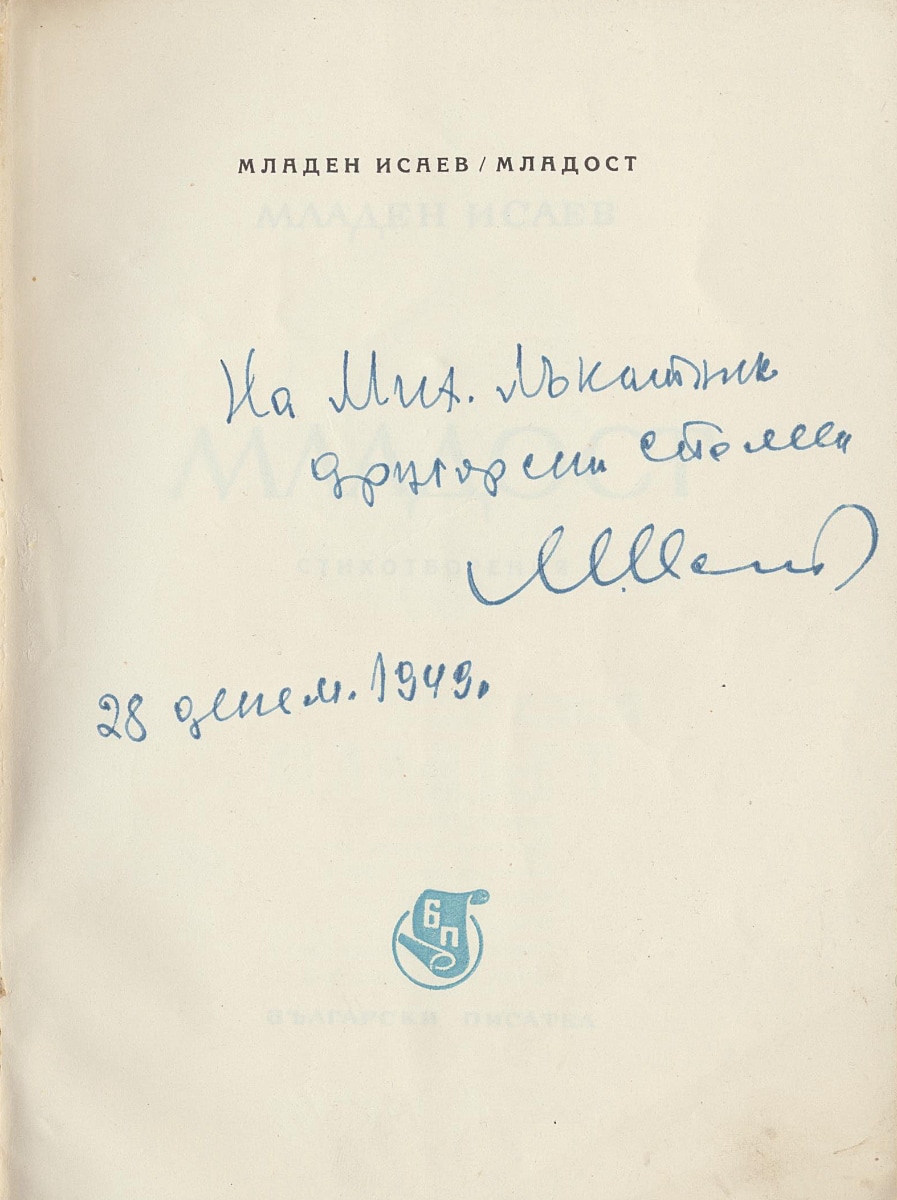 МЛАДЕН ИСАЕВ / МЛАДОСТ
МЛАДЕН ИСАЕВ
На Мих. Лъкатник
МЛАДОСТ
другарски спомен
СТИХОТВОРЕНИЯ
М. Исаев
28 декем. 1949.
БП
БЪЛГАРСКИ ПИСАТЕЛ